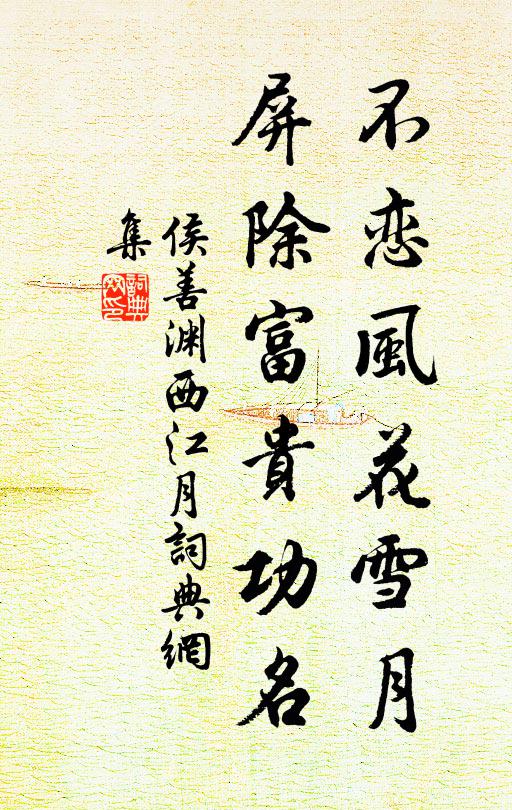 不恋風花雪月
屏除富貴功名
侯善渊西江月詞典網
集
詞典網印